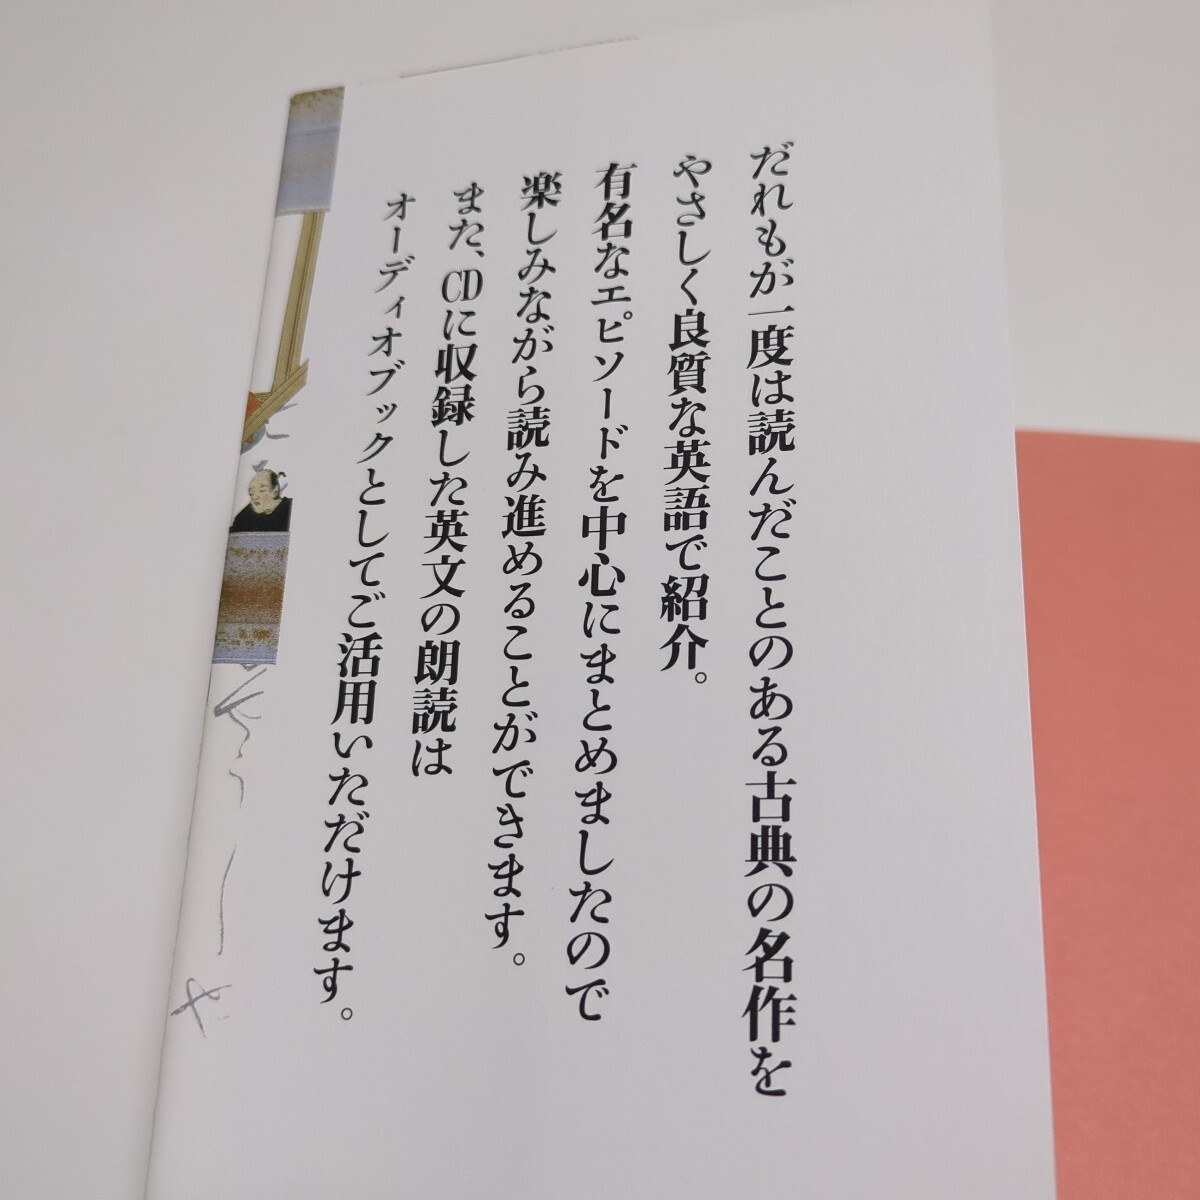 だれもが一度は読んだことのある古典の名作を
やさしく良質な英語で紹介。
有名なエピソードを中心にまとめましたので
楽しみながら読み進めることができます。
また、CDに収録した英文の朗読は
オーディオブックとしてご活用いただけます。